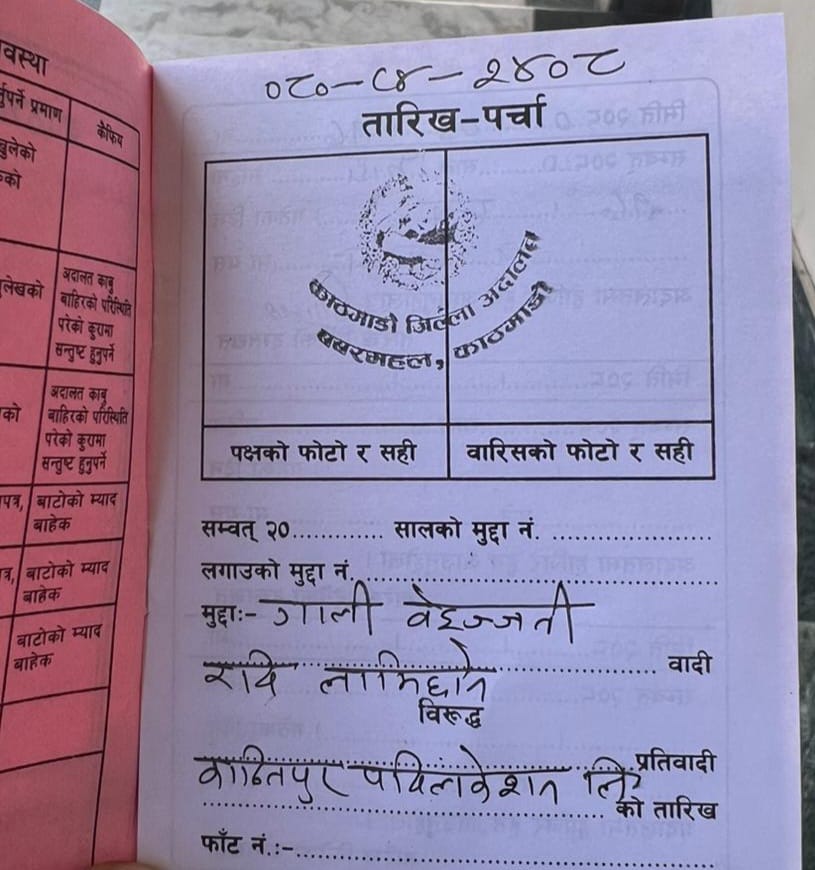 वस्था
र्नुपर्ने प्रमाण
कैफियत
खुलेको
को
लेखको
अदालत काबु
बाहिरको परिस्थिति
परेको कुरामा
सन्तुष्ट हुनुपर्ने
को
अदालत काबु
बाहिरको परिस्थिति
परेको कुरामा
सन्तुष्ट हुनुपर्ने
पत्र,
बाटोको म्याद
बाहेक
त्र,
बाटोको म्याद
बाहेक
बाटोको म्याद
बाहेक
०८०-C४-२४०८
तारिख-पर्चा
काठमाडौं जिल्ला अदालत
बबरमहल, काठमाडौं
पक्षको फोटो र सही
वारिसको फोटो र सही
सम्वत् २०............. सालको मुद्दा नं. ......................
लगाउको मुद्दा नं. ................................................
मुद्दाः- गाली वेइज्जती
रवि लामिछाने ...................... वादी
विरूद्ध
कान्तिपुर पव्लिकेशन लि. प्रतिवादी
............................................................ को तारिख
फाँट नं.:-............................................................